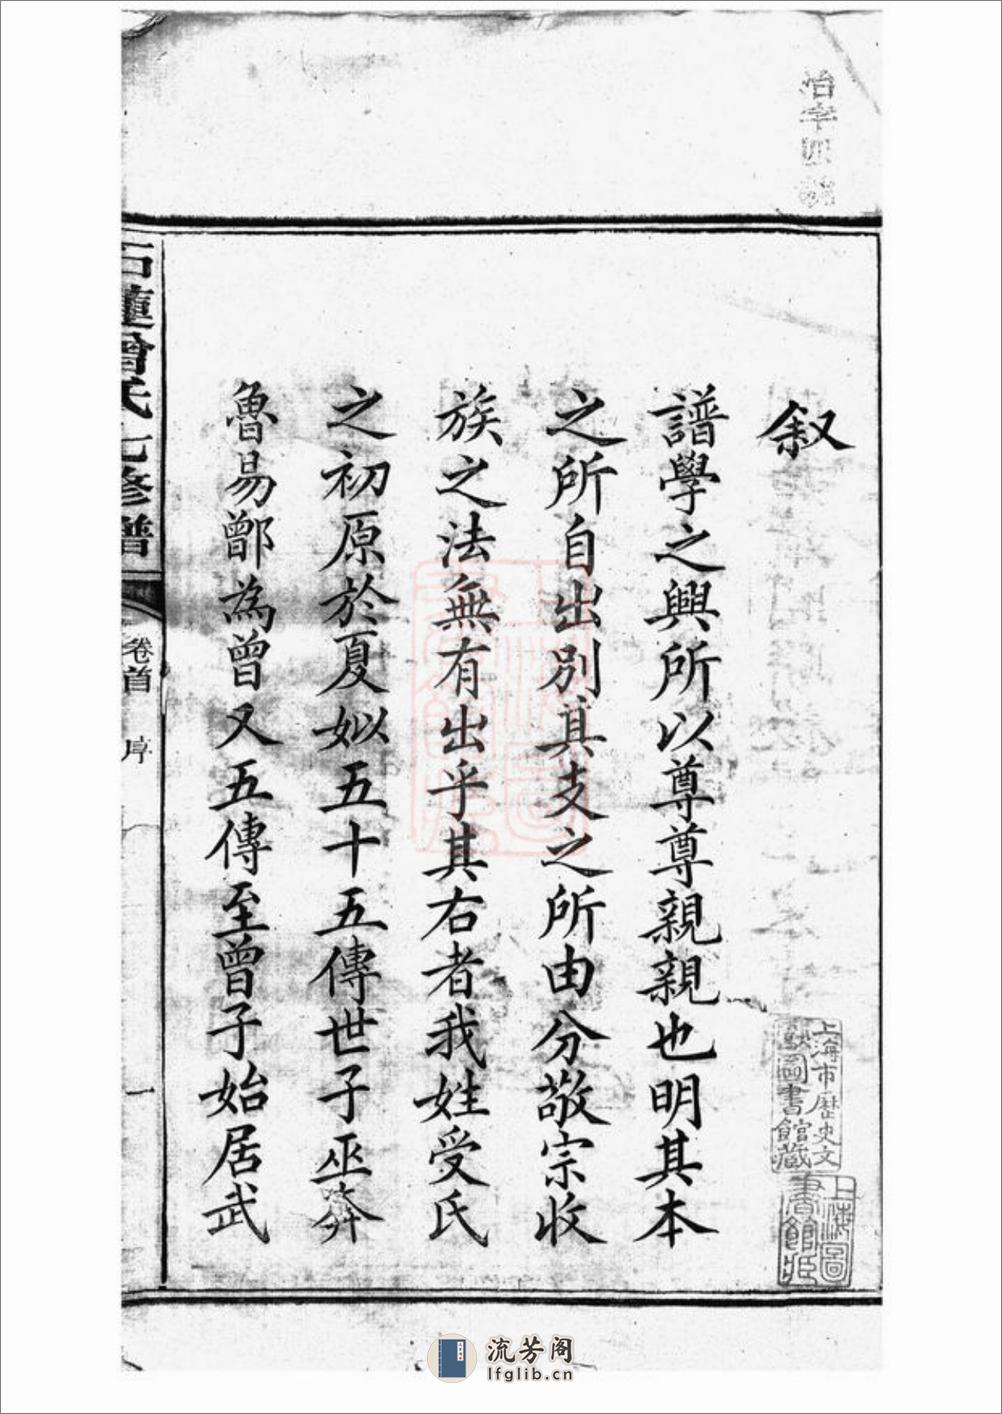 叙
譜學之興所以尊尊親親也明其本
之所自出別其支之所由分敬宗收
族之法無有出乎其右者我姓受氏
之初原於夏姒五十五傳世子巫奔
魯易鄫為曾又五傳至曾子始居武
石蓮曾氏七修譜
卷首 序 一
怡字四
上海市歷史文
獻圖書館藏
上海圖
書館藏
流芳阁
lfglib.cn